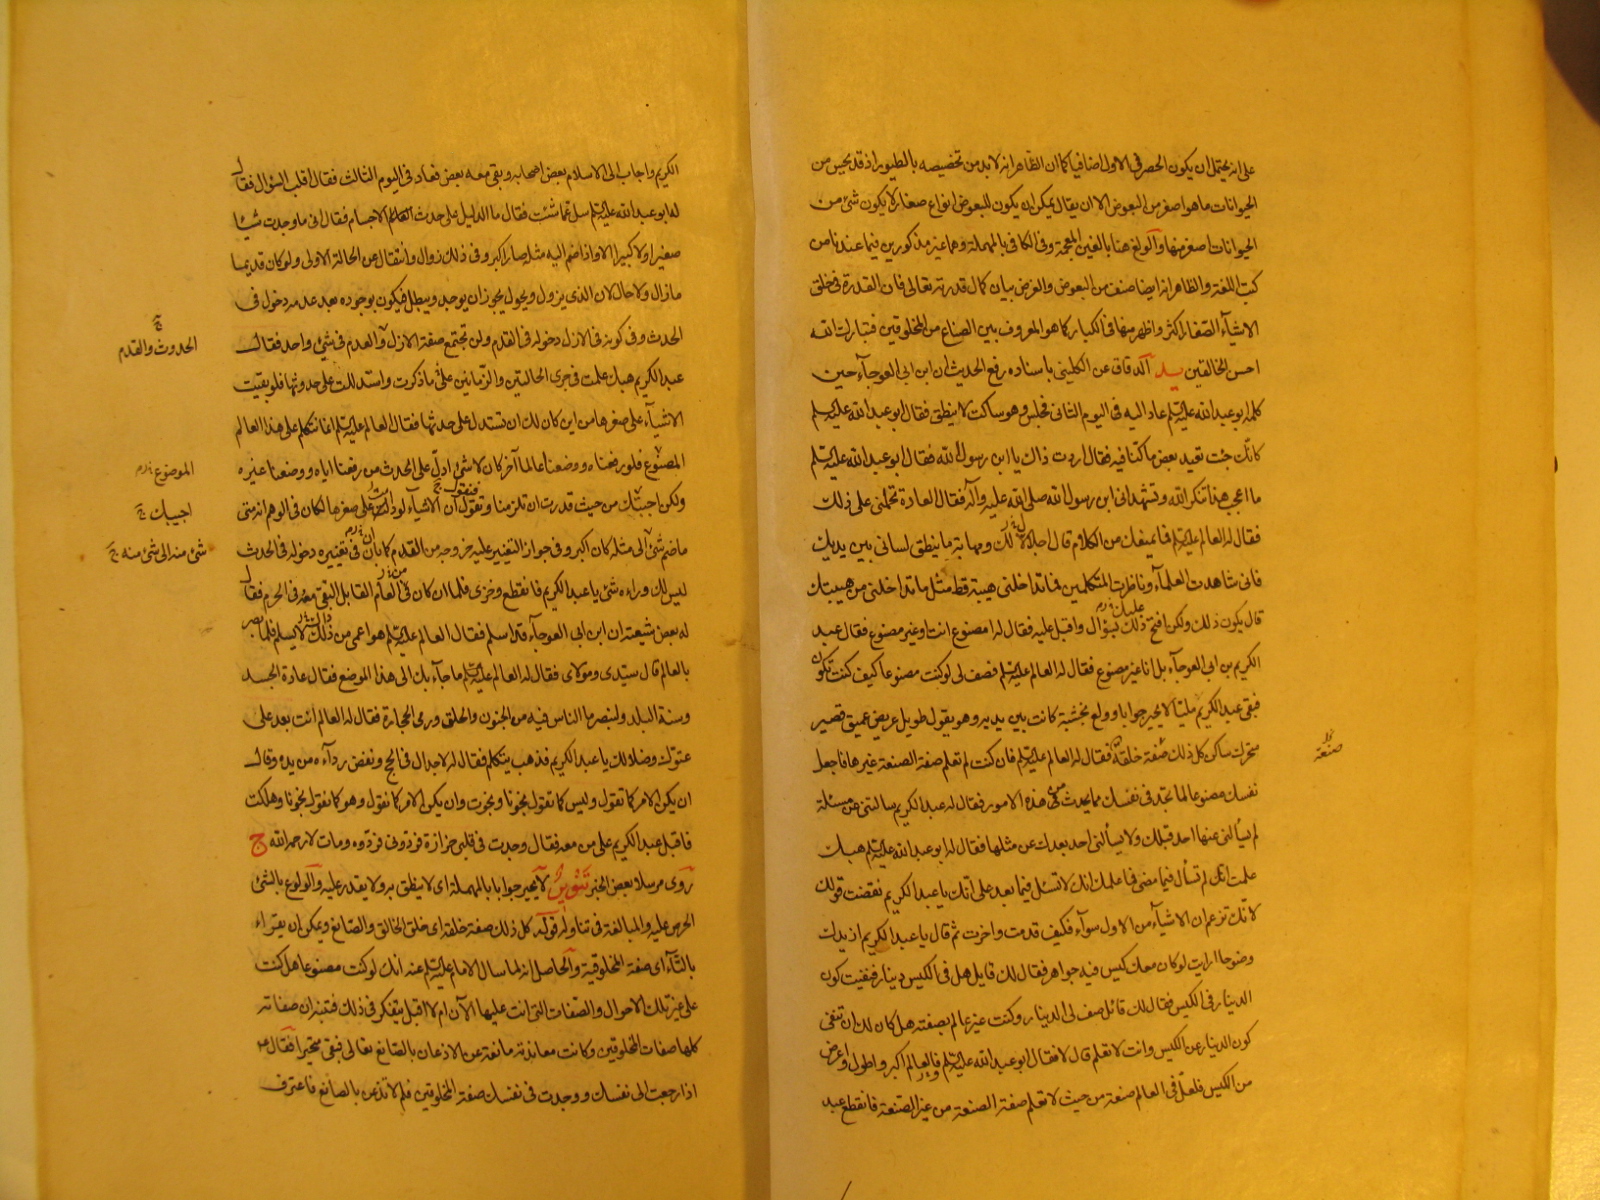 على انه يحتمل ان يكون الحصر في الاول اضافيا كما ان الظاهر انه لابد من تخصيصه بالطيور اذ قد يحس من
الحيوانات ما هو اصغر من البعوض الا ان يقال يمكن ان يكون للبعوض انواع صغار لا يكون شئ من
الحيوانات اصغر منها والولغ هنا بالغين المعجمة وفي الكافي بالمهملة وهما غير مذكورين فيما عندنا من
كتب اللغة والظاهر انه ايضا صنف من البعوض والغرض بيان كمال قدرته تعالى فان القدرة في خلق
الاشيآء الصغار اكثر واظهر منها في الكبار كما هو المعروف بين الصناع من المخلوقين فتبارك الله
احسن الخالقين يد الدقاق عن الكليني باسناده رفع الحديث ان ابن ابي العوجآء حين
كلمه ابو عبد الله عليه السلم عاد اليه في اليوم الثاني فجلس وهو ساكت لا ينطق فقال ابو عبد الله عليه السلم
كانك جئت تعيد بعض ما كنا فيه فقال اردت ذاك يا ابن رسول الله فقال ابو عبد الله عليه السلم
ما اعجب هذا تنكر الله وتشهد اني ابن رسول الله صلى الله عليه وآله فقال العادة تحملني على ذلك
فقال له العالم عليه السلم فما يمنعك من الكلام قال اجلالا لك ومهابة ما ينطق لساني بين يديك
فاني شاهدت العلمآء وناظرت المتكلمين فما تداخلني هيبة قط مثل ما تداخلني من هيبتك
قال يكون ذلك ولكن افتح عليك بسؤال واقبل عليه فقال له امصنوع انت او غير مصنوع فقال عبد
الكريم بن ابي العوجآء بل انا غير مصنوع فقال له العالم عليه السلم فصف لي لو كنت مصنوعا كيف كنت تكون
فبقي عبد الكريم مليّا لا يحير جوابا وولع بخشبة كانت بين يديه وهو يقول طويل عريض عميق قصير
متحرك ساكن كل ذلك صفة خلقه فقال له العالم عليه السلم فان كنت لم تعلم صفة الصنعة غيرها فاجعل
صنعة
نفسك مصنوعا لما تجد في نفسك مما يحدث من هذه الامور فقال له عبد الكريم سالتني عن مسئلة
لم يسألني عنها احد قبلك ولا يسألني احد بعدك عن مثلها فقال له ابو عبد الله عليه السلم هبك
علمت انك لم تسأل فيما مضى فما علمك انك لا تسئل فيما بعد على انك يا عبد الكريم نقضت قولك
لانك تزعم ان الاشيآء من الاول سوآء فكيف قدمت واخرت ثم قال يا عبد الكريم ازيدك
وضوحا ارايت لو كان معك كيس فيه جواهر فقال لك قايل هل في الكيس دينار فنفيت كون
الدينار في الكيس فقال لك قائل صف لي الدينار وكنت غير عالم بصفته هل كان لك ان تنفي
كون الدينار عن الكيس وانت لا تعلم قال لا فقال ابو عبد الله عليه السلم فالعالم اكبر واطول واعرض
من الكيس فلعل في العالم صنعة من حيث لا تعلم صفة الصنعة من غير الصنعة فانقطع عبد
الكريم واجاب الى الاسلام بعض اصحابه وبقي معه بعض فعاد في اليوم الثالث فقال اقلب السؤال فقال
له ابو عبد الله عليه السلم سل عما شئت فقال ما الدليل على حدث الاجسام فقال اني ما وجدت شيئا
صغيرا ولا كبيرا الا واذا ضم اليه مثله صار اكبر وفي ذلك زوال وانتقال عن الحالة الاولى ولو كان قديما
ما زال ولا حال لان الذي يزول ويحول يجوز ان يوجد ويبطل فيكون بوجوده بعد عدمه دخول في
الحدث وفي كونه في الازل دخوله في القدم ولن تجتمع صفة الازل والعدم في شئ واحد فقال
الحدوث والقدم
عبد الكريم هبك علمت في جري الحالتين والزمانين على ما ذكرت واستدللت على حدوثها فلو بقيت
الاشيآء على صغرها من اين كان لك ان تستدل على حدثها فقال العالم عليه السلم انما نتكلم على هذا العالم
المصنوع فلو رفعناه ووضعنا عالما آخر كان لا شئ ادل على الحدث من رفعنا اياه ووضعنا غيره
الموضوع
ولكن اجبتك من حيث قدرت ان تلزمنا ونقول ان الاشيآء لو دامت على صغرها لكان في الوهم انه متى
فنقول
اجيبك
ما ضم شئ الى مثله كان اكبر وفي جواز التغيير عليه خروجه من القدم كما بان في تغييره دخوله في الحدث
شئ منه الى شئ منه
ليس لك وراءه شئ يا عبد الكريم فانقطع وخزى فلما ان كان في العام القابل التقى معه في الحرم فقال
له بعض شيعته ان ابن ابي العوجآء قد اسلم فقال العالم عليه السلم هو اعمى من ذلك لا يسلم فلما بصر
بالعالم قال سيدي ومولاي فقال له العالم عليه السلم ما جآء بك الى هذا الموضع فقال عادة الجسد
وسنة البلد ولنبصر ما الناس فيه من الجنون والحلق ورمي الحجارة فقال له العالم انت بعد على
عتوك وضلالك يا عبد الكريم فذهب يتكلم فقال له لا جدال في الحج ونفض ردآءه من يده وقال
ان يكن الامر كما تقول وليس كما تقول نجونا ونجوت وان يكن الامر كما نقول وهو كما نقول نجونا وهلكت
فاقبل عبد الكريم على من معه فقال وجدت في قلبي حزازة فردوني فردوه ومات لا رحمه الله ج
روى مرسلا بعض الخبر تنوير لا يحير جوابا بالمهملة اي لا ينطق به ولا يقدر عليه والولوع بالشئ
الحرص عليه والمبالغة في تناوله قوله كل ذلك صفة خلقه اي خلق الخالق والصانع ويمكن ان يقراء
بالتآء اي صفة المخلوقية والحاصل انه لما سال الامام عليه السلم عنه انك لو كنت مصنوعا هل كنت
على غير تلك الاحوال والصفات التي انت عليها الآن ام لا اقبل يتفكر في ذلك فتنبه ان صفاته
كلها صفات المخلوقين وكانت معاندته مانعة عن الاذعان بالصانع تعالى فبقي متحيرا فقال ع
اذا رجعت الى نفسك ووجدت في نفسك صفة المخلوقين فلم لا تذعن بالصانع فاعترف